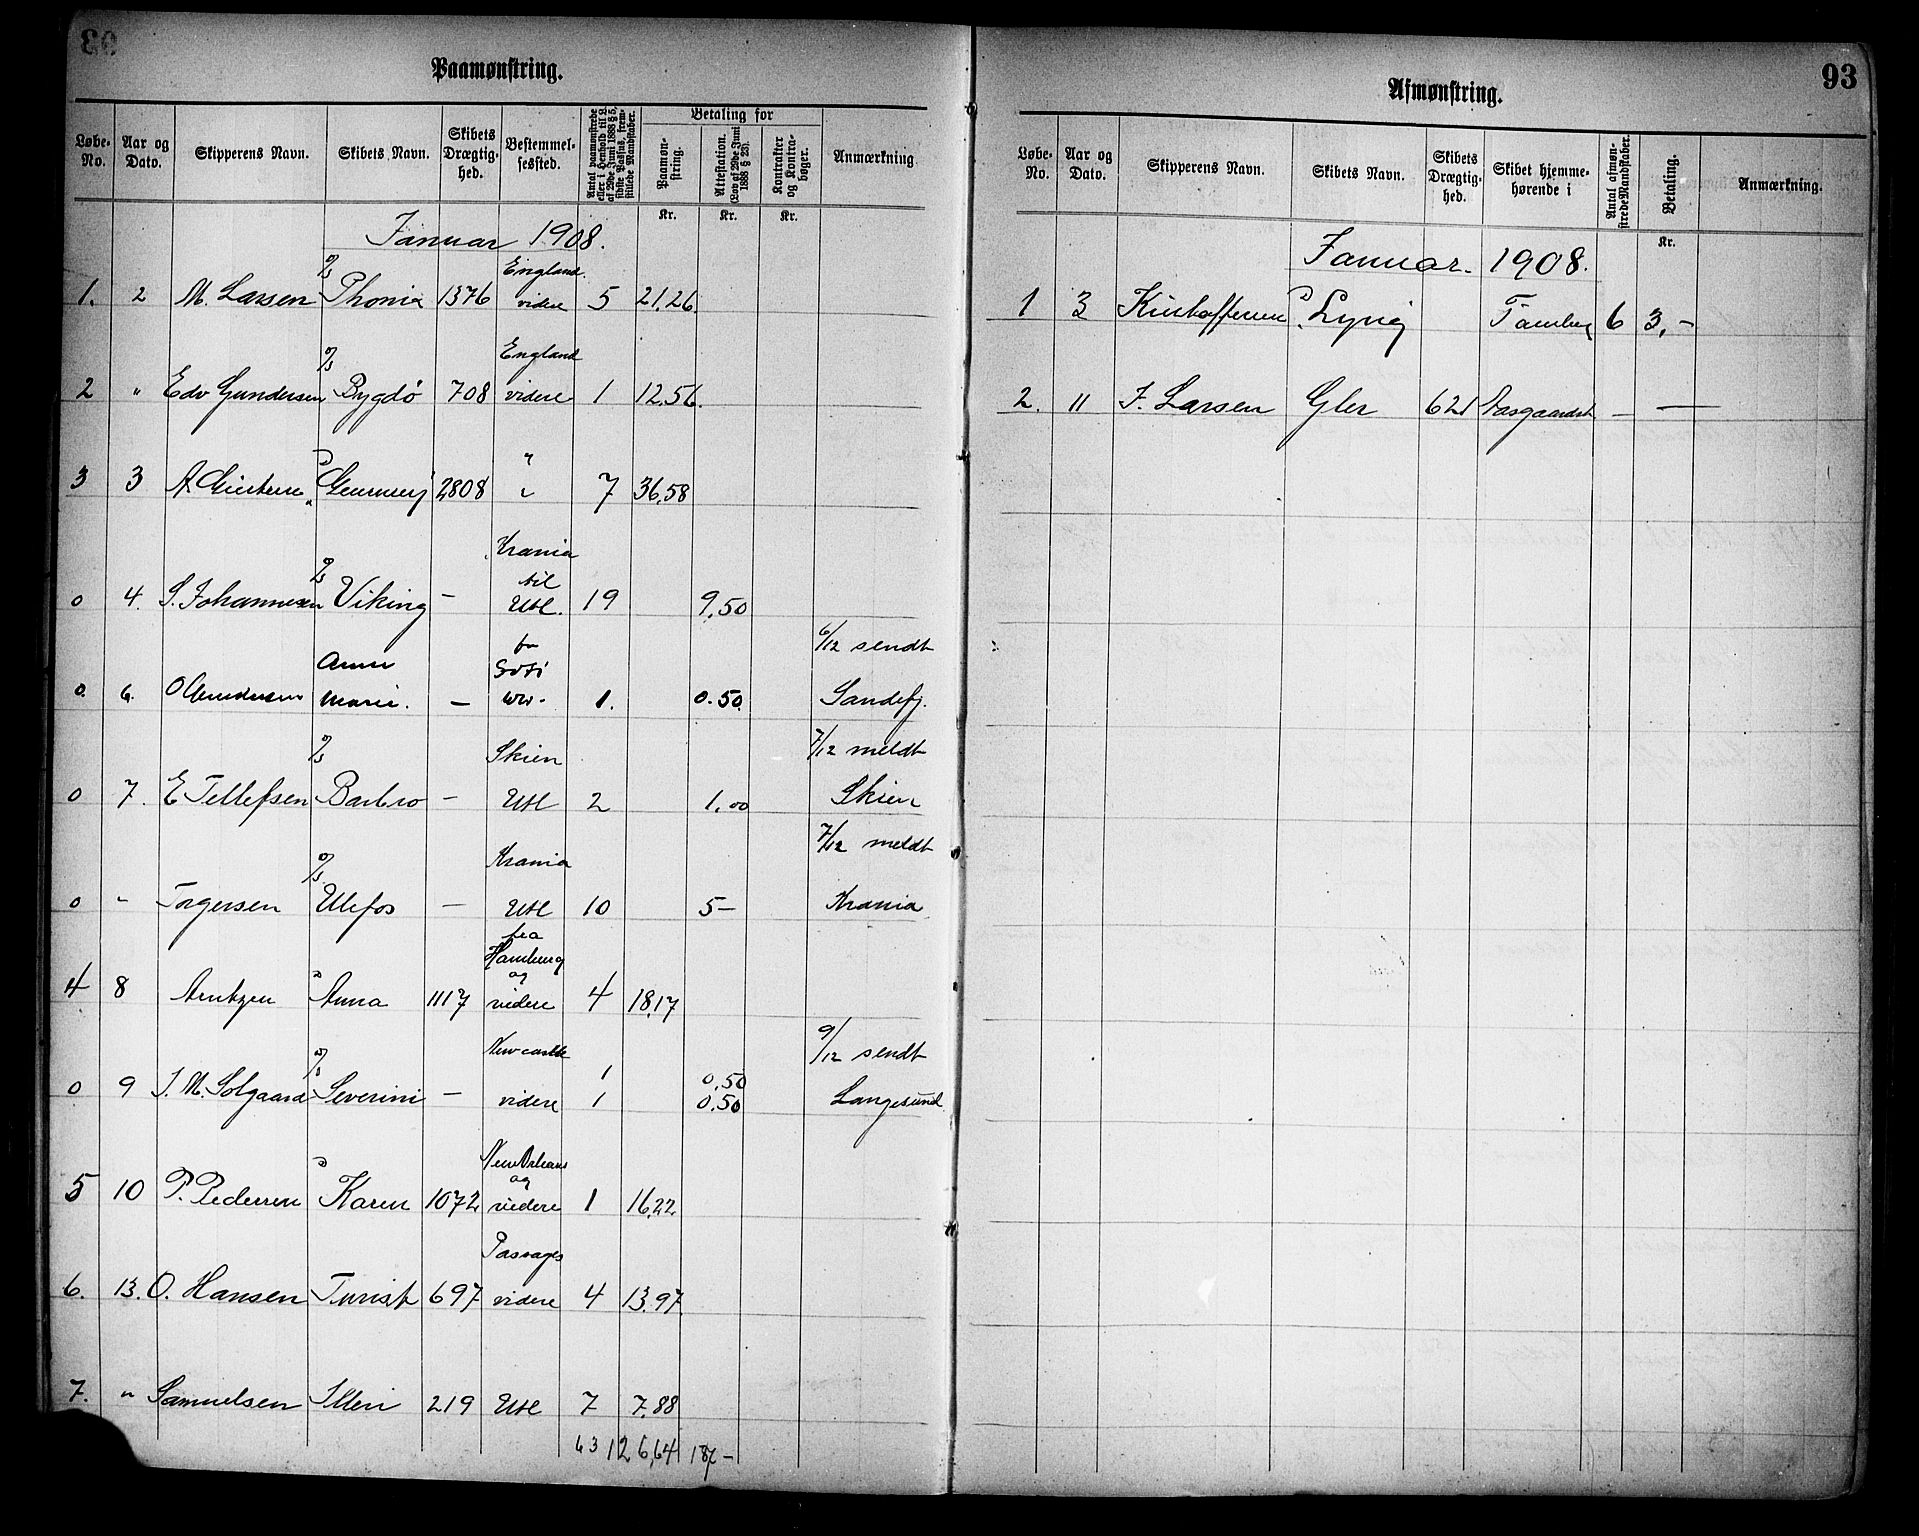 Paamønstring.
Løbe-No. Aar og Dato. Skipperens Navn. Skibets Navn. Skibets Drægtighed. Bestemmelsessted. Antal paamønstrede eller i Henhold til L. af 29de Juni 1888 § 5, sidste Passus, fremstillede Mandskaber. Betaling for Paamønstring. Attestation. (Lov af 29de Juni 1888 § 23). Kontrakter og Kontrabøger. Anmærkning
Kr. Kr. Kr.
Januar 1908.
England
1. 2 M. Larsen Phonix 1376 videre 5 21,26
England
2 " Edv Gundersen Bygdø 708 videre 1 12,56
3 3 2808 " 7 36,58
Krania
til
0 4. S. Johannesen Viking — Utl. 19 9,50
6/12 sendt
0. 6. Marie. — 1. 0.50 Sandefj.
Skien 7/12 meldt
0 7. E Tellefsen Barbro — Utl 2 1,00 Skien
Krania 7/12 meldt
0 " Torgersen Ulefos — Utl 10 5— Krania
fra
Hamburg
og
4 8 Arntzen Anna 1117 videre 4 18,17
Newcastle 9/12 sendt
1 0,50
0 9 J. M. Solgaard Severini — videre 1 0,50 Langesund
New Orleans
og
5 10 P. Pedersen Karen 1072 videre 1 16,22
Passages
6. 13. O. Hansen Turist 697 videre 4 13,97
7. " Samuelsen 219 Utl 7 7,88
63 126,64
93
Afmønstring.
Løbe-No. Aar og Dato. Skipperens Navn. Skibets Navn. Skibets Drægtighed. Skibet hjemmehørende i Antal afmønstrede Mandskaber. Betaling. Anmærkning.
Kr.
Januar. 1908.
1 3 Lyng 6 3,—
2. 11 J. Larsen Gler 621 Aasgaardst — —